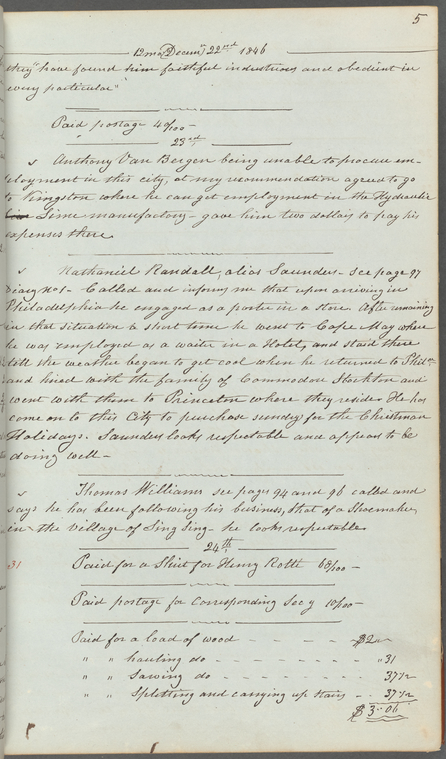 5
12 mo (Decemr) 22nd 1846
they "have found him faithful industrious and obedient in
every particular"
Paid postage 40/100 -
23rd
Anthony Van Bergen being unable to procure em-
ployment in this city, at my recommendation agreed to go
to Kingston where he can get employment in the Hydraulic
Lime manufactory - gave him two dollars to pay his
expenses there
Nathaniel Randall, alias Saunders - see page 97
Diary No 1 - Called and informs me that upon arriving in
Philadelphia he engaged as a porter in a store. After remaining
in that situation a short time he went to Cape May where
he was employed as a waiter in a Hotel, and staid there
till the weather began to get cool when he returned to Phila
and hired with the family of Commodore Stockton and
went with them to Princeton where they reside. He has
come on to this City to purchase sundry for the Christmas
Holidays. Saunders looks respectable and appears to be
doing well -
Thomas Williams see pages 94 and 96 called and
says he has been following his business, that of a Shoemaker
in the village of Sing Sing - he looks respectable
24th
31 Paid for a Shirt for Henry Rottt 68/100 -
Paid postage for Corresponding Secy 10/100 -
Paid for a load of wood - - - - - - $2 -
" " hauling do - - - - - - - " 31
" " sawing do - - - - - - - 37 1/2
" " Splitting and carrying up stairs - - 37 1/2
$ 3.. 06